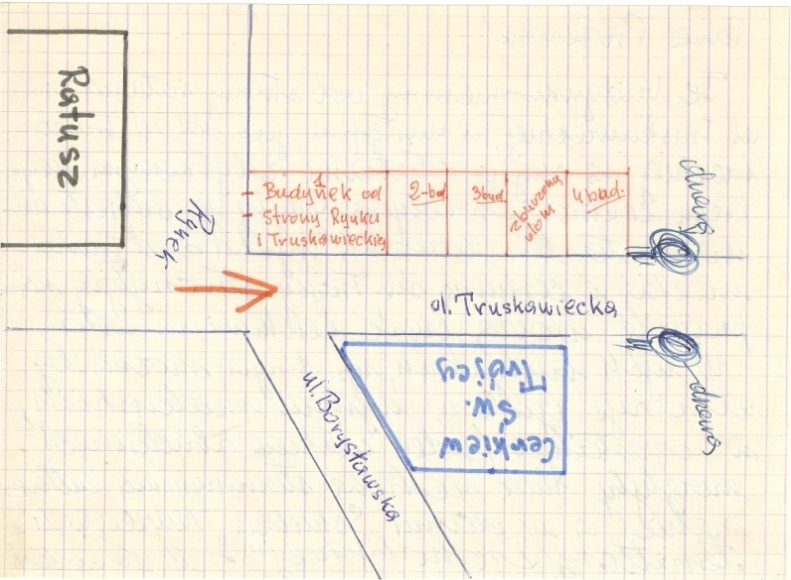 Ratusz
Rynek
1
- Budynek od
- Strony Rynku
i Truskawieckiej
2-bud
3bud
zburzony
dom
4 bud.
drzewa
ul. Truskawiecka
ul. Borysławska
Cerkiew
Św.
Trójcy
drzewa